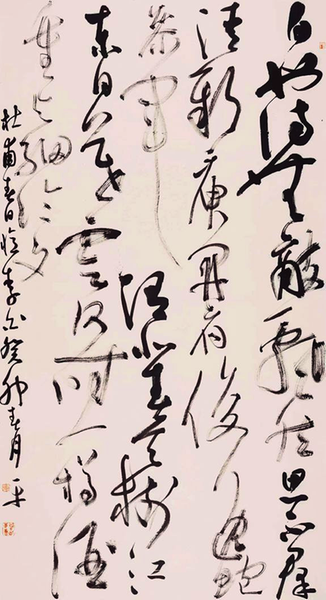 白也詩無敵飄然思不群
清新庾開府俊逸鮑
參軍渭北春天樹江
東日暮雲何時一樽酒
重與細論文
杜甫春日憶李白癸卯春月一平